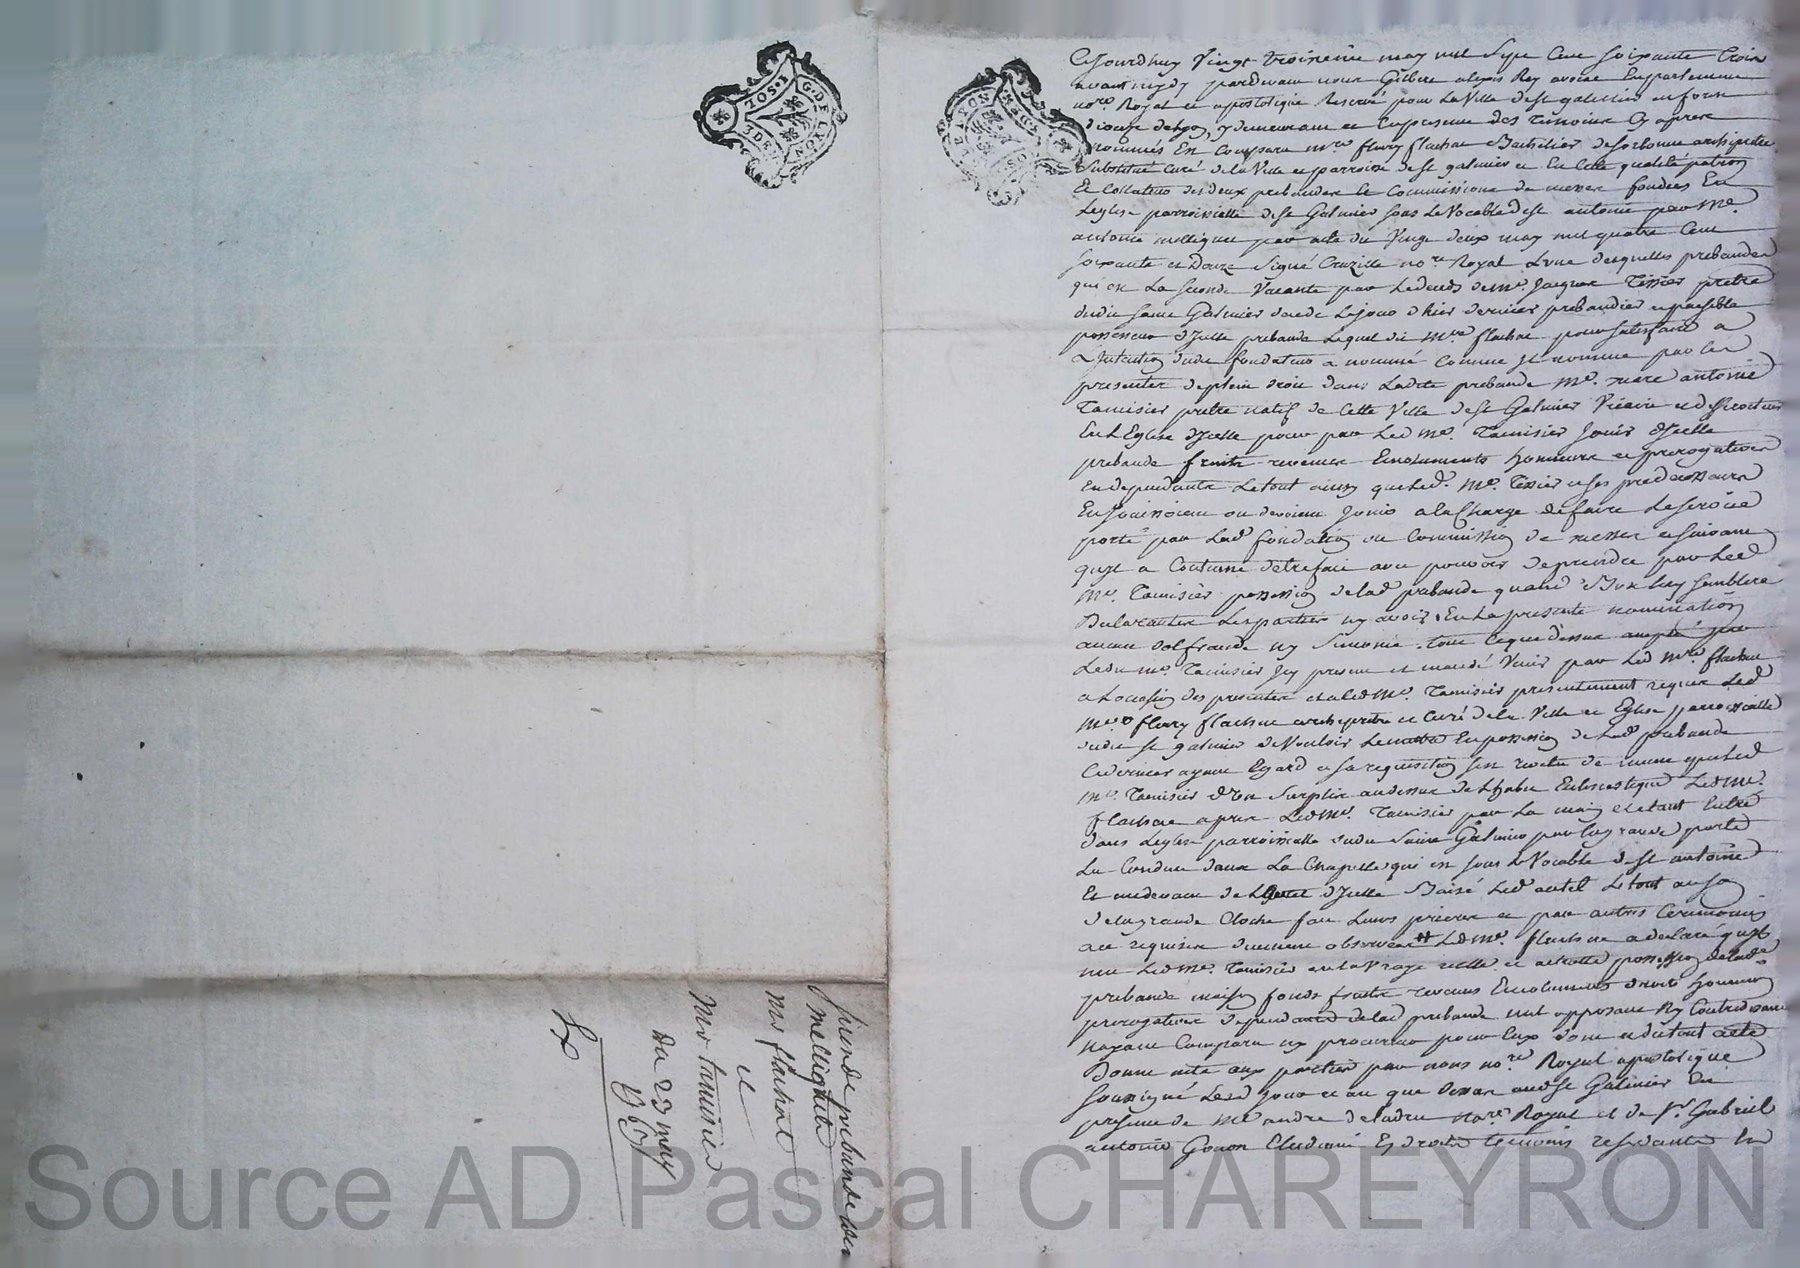 Cejourdhuy Vingt troisieme may mil Sept Cent soixante trois
avant mydy pardevant nous Gilbert alexis Rey avocat En parlement
nore. Royal et apostolique Reservé pour La Ville de st galmier
diocese de Lyon, y demeurant et En presence des Temoins Cy apres
nommés En Compara mre fleury flachat Bachelier de sorbonne archiprêtre
Substitué Curé de la Ville et parroisse de st galmier et En Cette qualité patron
Et Collateur des deux prebandes et Commissions de messes fondées En
Leglise parroissialle de st Galmier sous Le Vocable de st antoine par Me.
antoine melliquet par acte du Vingt deux may mil quatre Cent
soixante et Douze Signé Cruzille nore. Royal Lune desquelles prebandes
qui est La seconde Vacante par Le deceds de Me. Jacques Tissier pretre
dudit saint Galmier decedé Le jour d'hier dernier prebandier et paisible
possesseur d'Icelle prebande Lequel dit Mre flachat pour satisfaire a
L'Intention dudit fondateur a nommé Comme Il nomme par Les
presentes de plein droit dans Ladite prebande Me. marc antoine
Tamisier pretre natif de Cette Ville de st Galmier Vicaire et desserviteur
En L'Eglise d'Icelle pour par Led Me. Tamisier Jouir d'Icelle
prebande fruits revenus Emoluments honneurs et prerogatives
En dependants Le tout ainsy que Led. Me. Tissier et ses predecesseurs
En jouissoient ou devoient Jouir a la Charge de faire Le service
porté par Lad fondation ou Commission de messes et suivant
quil a Coutume d'etre fait avec pouvoir de prendre par Led
Me. Tamisier possession de lad prebande quand Bon luy semblera
Declarantes Les parties ny avoir En La presente nomination
aucun dol fraude ny Simonie. tout Ceque dessus accepté par
Ledit Me. Tamisier Icy present et mandé Venir par Led Mre. flachat
a Loccasion des presentes et a Led Me. Tamisier presentement requis Led
Me. fleury flachat archiprêtre et Curé de la Ville et Eglise parroissialle
dudit st galmier de Vouloir Le mettre En possession de Lad prebande
Ce dernier ayant Egard a sa requisition s'est revetu de meme que Led
Me. Tamisier d'Un Surplis audessus de L'habit Eclesiastique Led Me.
flachat a pris Led Me. Tamisier par La main et etant Entré
dans Leglise parroissialle dudit Saint Galmier par la grande porte
La Conduit dans La Chapelle qui est sous Le Vocable de st antoine
Et audevant de L'autel d'Icelle Baisé Led autel Le tout au son
de la grande Cloche fait Leurs prieres et par autres Ceremonies
a ce requises duement observées Led Me. flachat a declaré quil
met Led Me. Tamisier en la Vraye reelle et actuelle possession de lad
prebande maison fonds fruits revenus Emoluments droits honneurs
prerogatives dependants de lad prebande nul opposant Ny Contredisant
Nayant Comparu ny procureur pour Eux dont et du tout acte
Donné acte aux parties par nous nore. Royal apostolique
soussigné Lesd jour et an que dessus aud st Galmier En
presence de Me andré deladru Nore. Royal et de Sr. Gabriel
antoine Gonon Etudiant En droit temoins residants En
seconde prebande de
melliquet
Mre flachat
et
Mre tamisier
du 23 may
1763
G. DE LYON